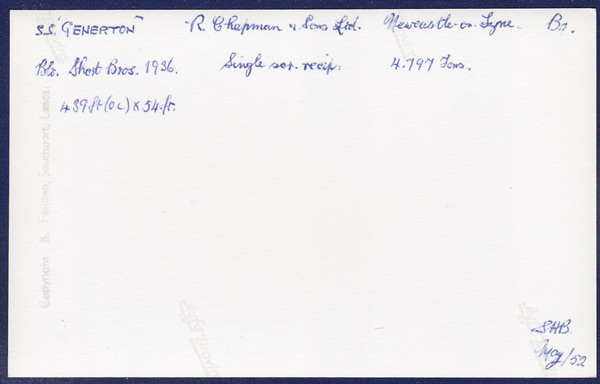 S.S. "GENERTON" R. Chapman & Sons Ltd. Newcastle-on-Tyne. Br.
Blt. Short Bros. 1936. Single scr. recip. 4.797 Tons.
439 ft (oa) x 54 ft.
Copyright B. Feilden, Southport, Lancs.
SHB
May/52